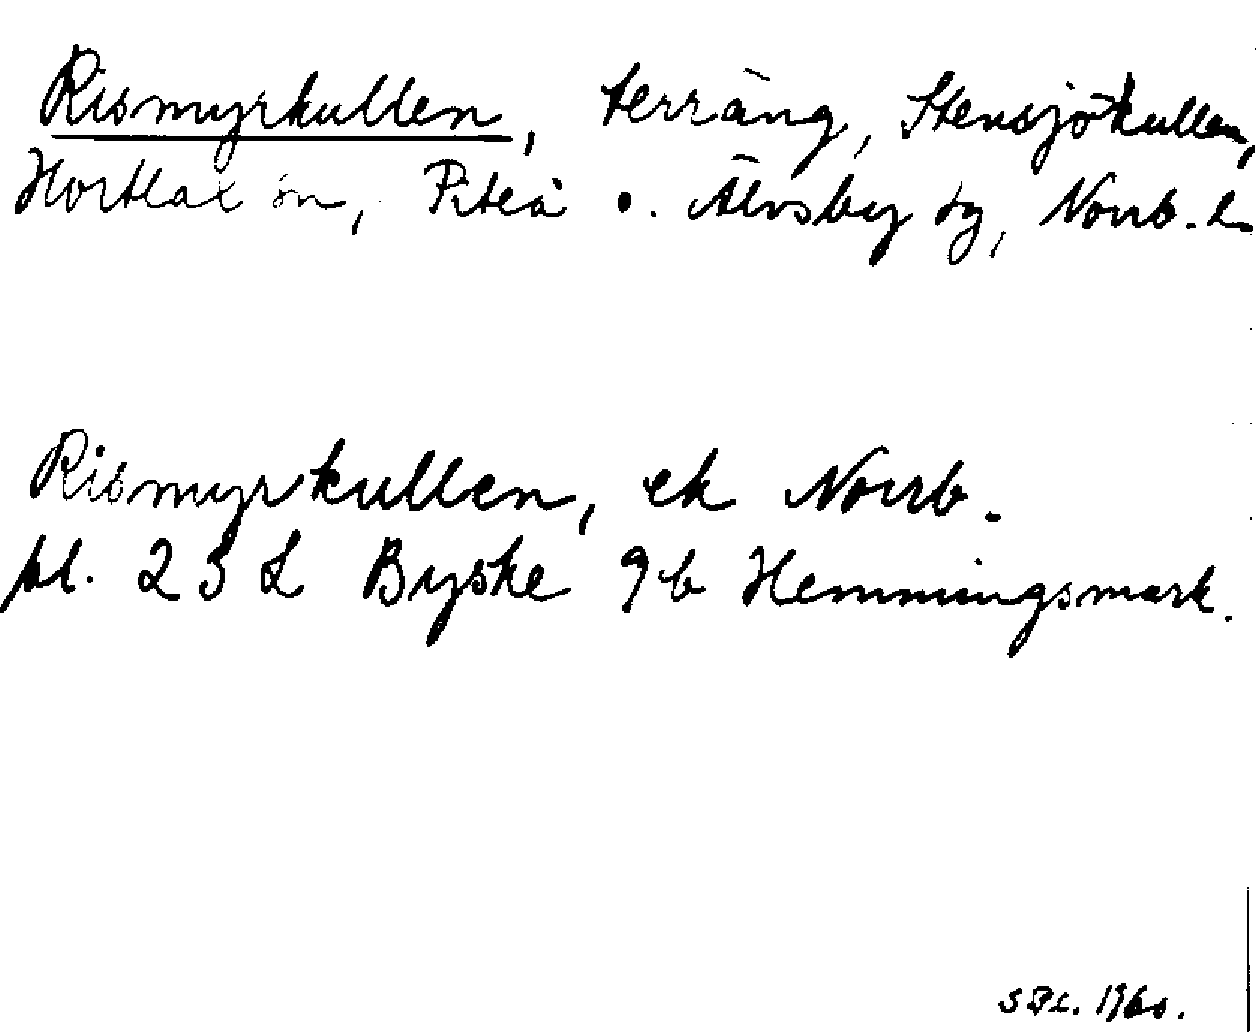 Rismyrkullen, terräng, Stensjökullen,
Hortlax sn, Piteå o. Älvsby tg, Norrb. l
Rismyrkullen, ek Norrb.
bl. 23 L Byske 9b Hemmingsmark.
1960.